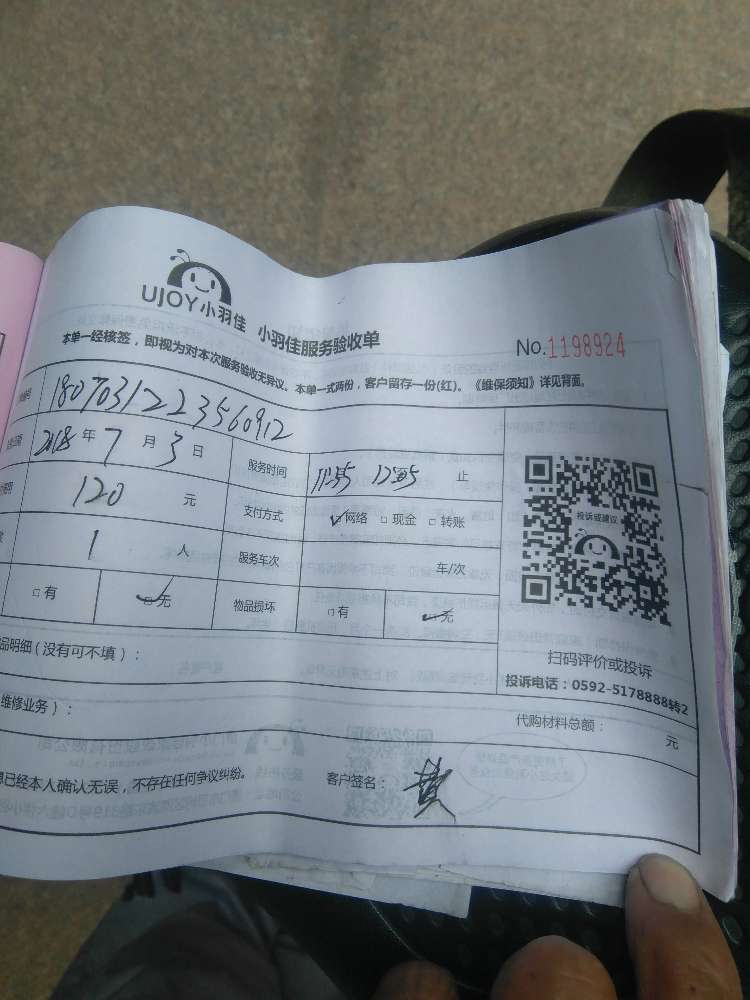 UJOY小羽佳 小羽佳服务验收单
No.1198924
本单一经核签，即视为对本次服务验收无异议。本单一式两份，客户留存一份(红)。《维保须知》详见背面。
1807031223560912
2018年7月3日 服务时间 11:55 12:05 止
120 元 支付方式 ☑网络 □现金 □转账
投诉或建议
1 人 服务车次 车/次
□有 ☑无 物品损坏 □有 ☑无
扫码评价或投诉
品明细(没有可不填)：
投诉电话：0592-5178888转2
维修业务)：
代购材料总额： 元
已经本人确认无误，不存在任何争议纠纷。 客户签名： 黄